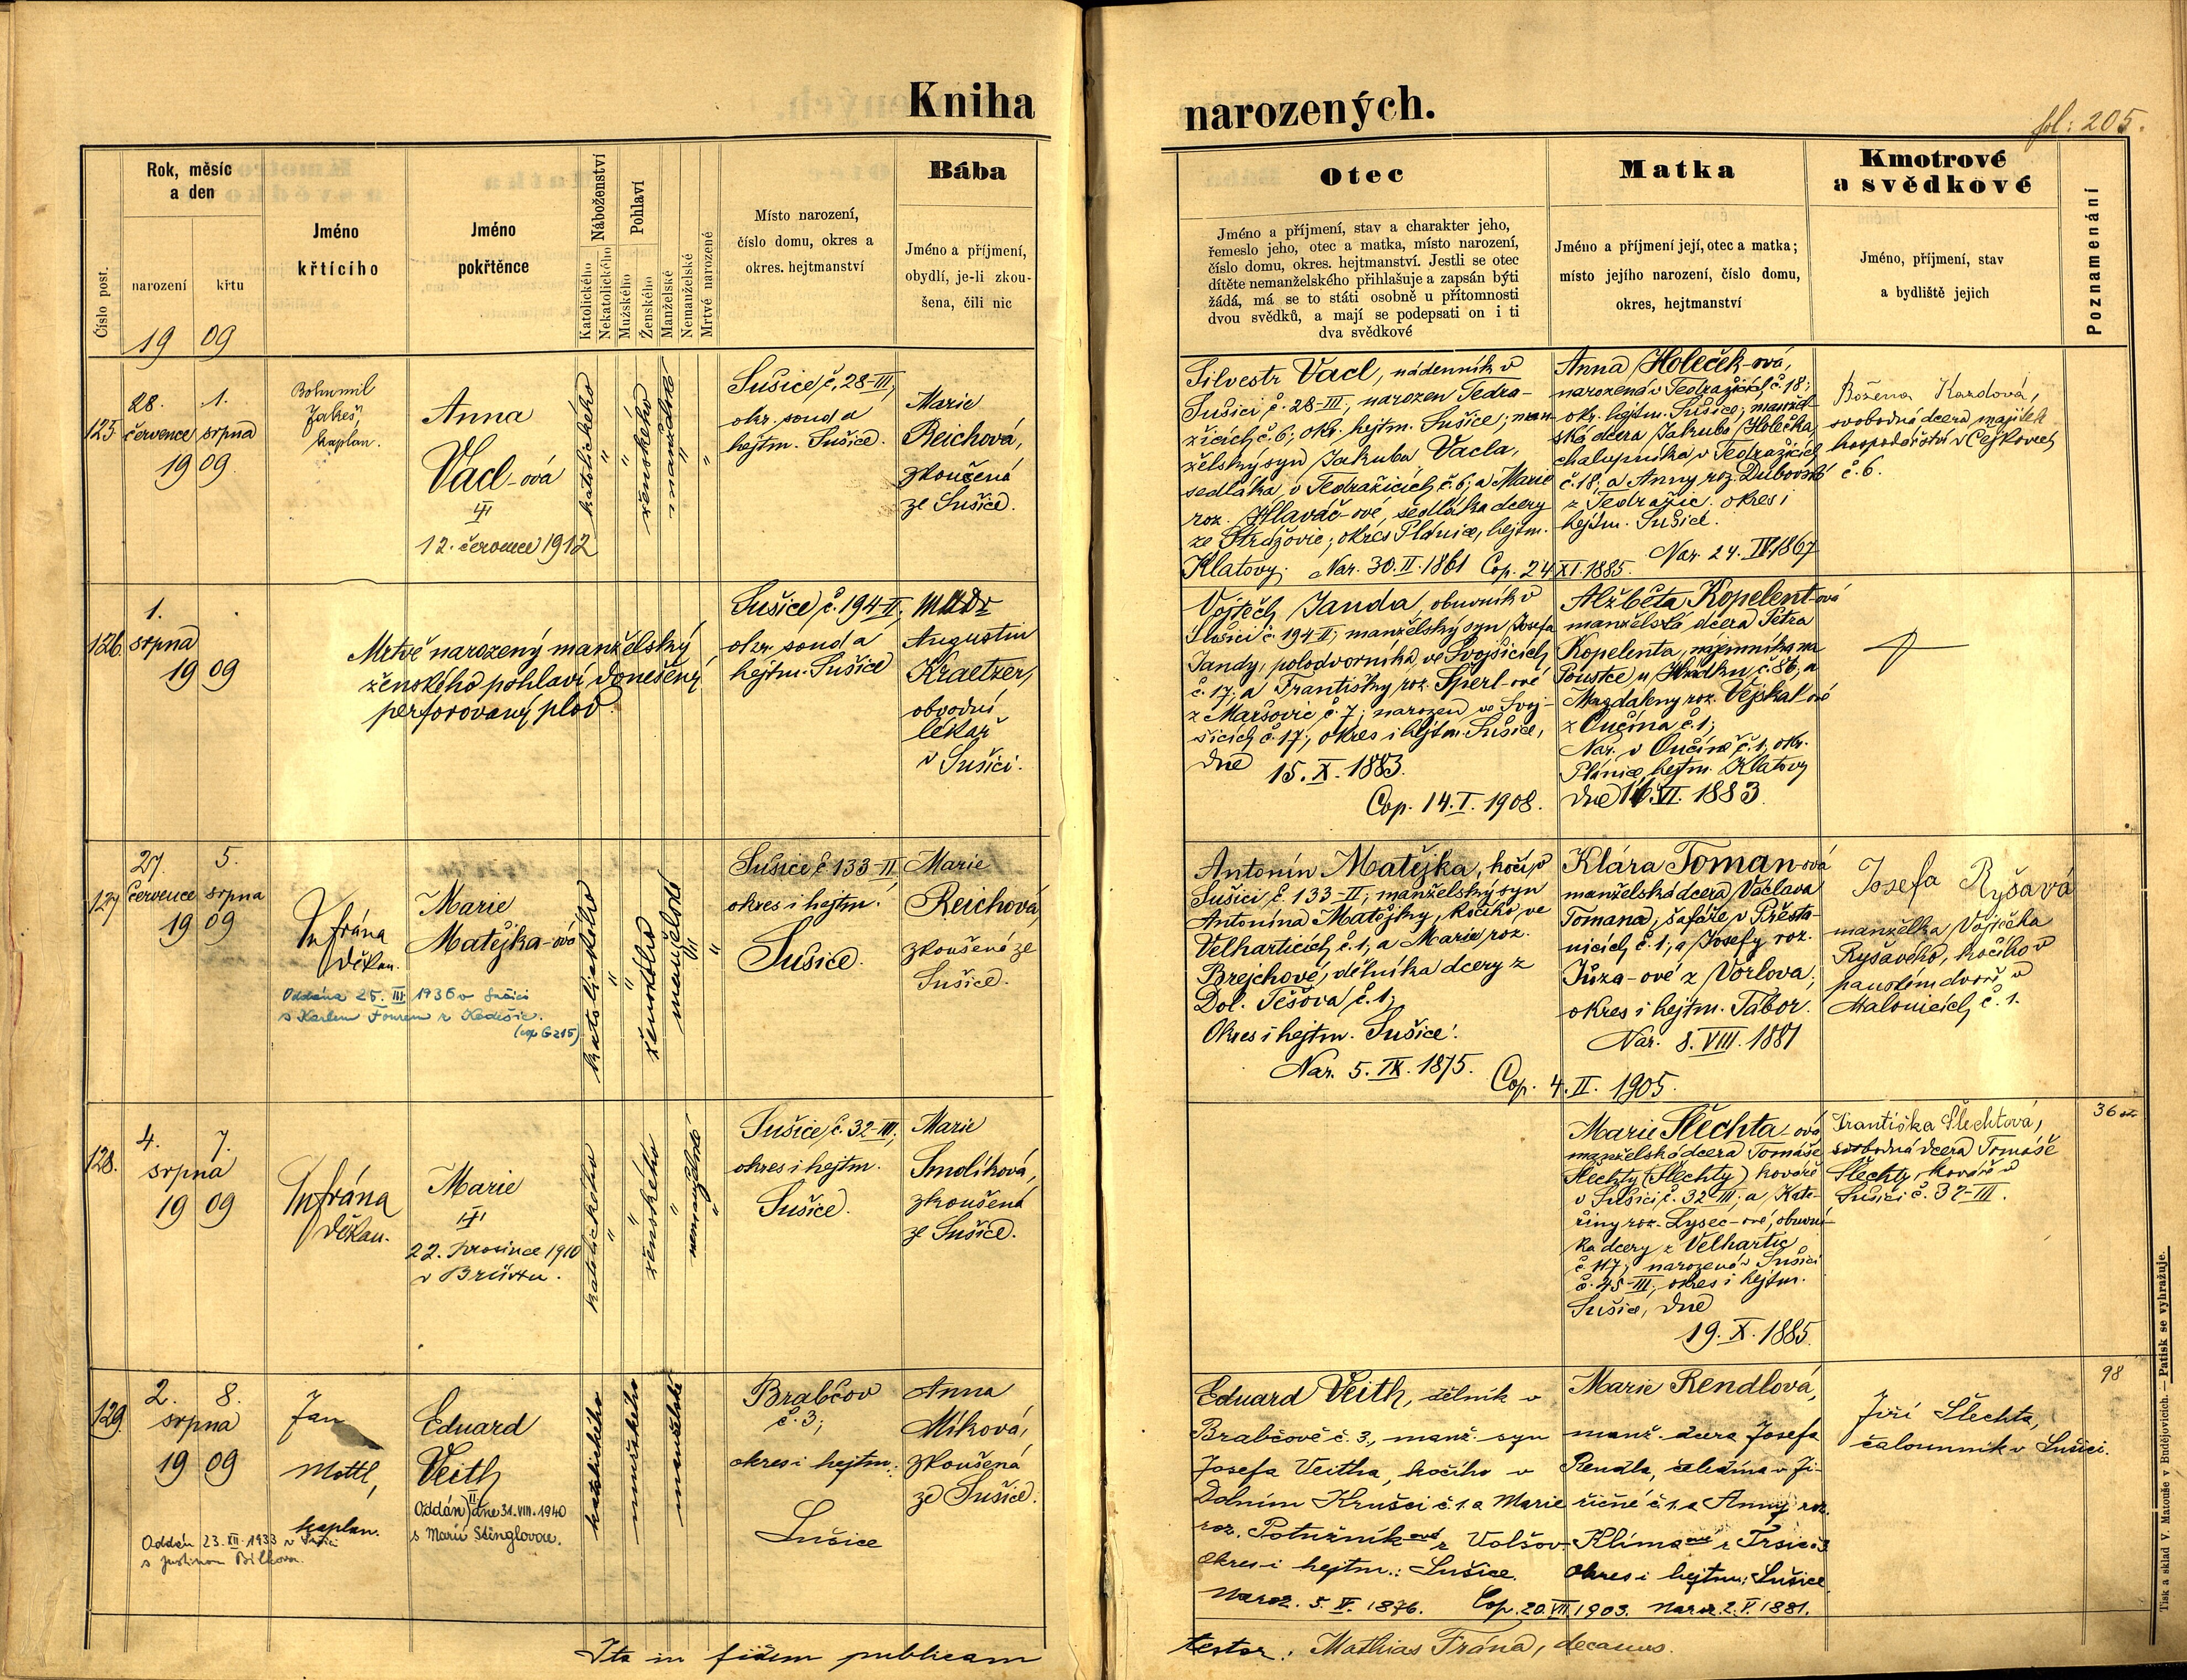 Kniha
narozených.
fol: 205.
Číslo post.
Rok, měsíc
a den
narození
křtu
19 09
Jméno
křtícího
Jméno
pokřtěnce
Náboženství
Katolického
Nekatolického
Pohlaví
Mužského
Ženského
Manželské
Nemanželské
Mrtvé narozené
Místo narození,
číslo domu, okres a
okres. hejtmanství
Bába
Jméno a příjmení,
obydlí, je-li zkou-
šena, čili nic
Otec
Jméno a příjmení, stav a charakter jeho,
řemeslo jeho, otec a matka, místo narození,
číslo domu, okres. hejtmanství. Jestli se otec
dítěte nemanželského přihlašuje a zapsán býti
žádá, má se to státi osobně u přítomnosti
dvou svědků, a mají se podepsati on i ti
dva svědkové
Matka
Jméno a příjmení její, otec a matka;
místo jejího narození, číslo domu,
okres, hejtmanství
Kmotrové
a svědkové
Jméno, příjmení, stav
a bydliště jejich
Poznamenání
125
28. 1.
července srpna
19 09.
Bohumil
Jakeš,
kaplan.
Anna
Vacl-ová
12. července 1912
katolického
"
"
ženského
manželské
"
"
Sušice, č. 28-III,
okr. soud a
hejtm. Sušice.
Marie
Reichová,
zkoušená
ze Sušice.
Silvestr Vacl, nádenník v
Sušici č. 28-III, narozen Tedra-
žicích č. 6; okr. hejtm. Sušice; man-
želský syn Jakuba Vacla,
sedláka v Tedražicích č. 6; a Marie
roz. Hlaváč-ové, sedláka dcery
ze Strážovic; okres Plánice, hejtm.
Klatovy. Nar. 30. II. 1861 Cop. 24 XI. 1885.
Anna Holeček-ová,
narozená v Tedražicích č. 18;
okr. hejtm. Sušice; manžel-
ská dcera Jakuba Holečka
chalupníka v Tedražicích
č. 18, a Anny roz. Dubovské
z Tedražic okres i
hejtm. Sušice.
Nar. 24. IV. 1867
Božena Kazdová,
svobodná dcera majitele
hospodářství v Čejkovech
č. 6.
126.
1.
srpna
19 09
Mrtvě narozený manželský
ženského pohlaví, donešený
perforovaný plod.
Sušice, č. 194-II,
okr. soud a
hejtm. Sušice
MUDr
Augustin
Kraetzer,
obvodní
lékař
v Sušici.
Vojtěch Janda, obuvník v
Sušici č. 194 II; manželský syn Josefa
Jandy, polodvorníka ve Svojšicích
č. 17, a Františky roz. Šperl-ové
z Maršovic č. 7; narozen ve Svoj-
šicích č. 17, okres i hejtm. Sušice,
dne 15. X. 1883.
Cop. 14. I. 1908.
Alžběta Kopelent-ová
manželská dcera Petra
Kopelenta, nájemníka na
Poustce u Hrádku, č. 86, a
Magdaleny roz. Vejskal-ové
z Oučína č. 1;
Nar. v Oučíně č. 1, okr.
Plánice, hejtm. Klatovy
dne 16. VI. 1883.
127
27. 5.
července srpna
19 09
Mfrána
děkan.
Marie
Matějka-ová
Oddána 25. III 1936 v Sušici
s Karlem Fourem z Kadešic.
(cop G 215)
katolického
"
"
ženského
manželské
"
"
Sušice, č 133-II,
okres i hejtm.
Sušice.
Marie
Reichová,
zkoušená ze
Sušice.
Antonín Matějka, kočí, v
Sušici, č. 133-II; manželský syn
Antonína Matějky, kočího ve
Velharticích, č. 1; a Marie roz.
Brejchové, dělníka dcery z
Dol. Těšova, č. 1;
Okres i hejtm. Sušice.
Nar. 5. IX. 1875.
Cop. 4. II. 1905.
Klára Toman-ová
manželská dcera Václava
Tomana, šafáře v Přesta-
nicích č. 1, a Josefy roz.
Jůza-ové z Vorlova,
okres i hejtm. Tábor.
Nar. 8. VIII. 1881
Josefa Ryšavá
manželka Vojtěcha
Ryšavého, kočího v
panském dvoře v
Malonicích, č. 1.
128.
4. 7.
srpna
19 09
Mfrána
děkan.
Marie
22. prosince 1910
katolického
"
"
ženského
"
nemanželské
"
Sušice, č. 32-III;
okres i hejtm.
Sušice.
Marie
Smolíková,
zkoušená
ze Sušice.
Marie Šlechta-ová
manželská dcera Tomáše
Šlechty (Šlechty) kováře
v Sušici č. 32-III; a Kate-
řiny roz. Lysec-ové, obuvní-
ka dcery z Velhartic
č. 117; narozená v Sušici
č. 45-III, okres i hejtm.
Sušice, dne
19. X. 1885.
Františka Šlechtová,
svobodná dcera Tomáše
Šlechty, kováře v
Sušici č. 32-III.
36
129.
2. 8.
srpna
19 09
Jan
Mottl,
kaplan.
Eduard
Veith
Oddán II dne 31. VIII. 1940
s Marií Stinglovou.
Oddán 23. XII. 1933 v Sušici
s Justinou Bílkovou.
katolického
mužského
manželské
Brabčov
č. 3;
okres i hejtm.:
Sušice
Anna
Míková,
zkoušená
ze Sušice.
Eduard Veith, dělník v
Brabčově č. 3., manž. syn
Josefa Veitha, kočího v
Dolním Krušci č. 1. a Marie
roz. Potužník ové z Volšov
okres i hejtm.: Sušice.
Naroz. 5. IV. 1876. Cop. 20. VII 1903.
Marie Rendlová,
manž. dcera Josefa
Rendla, čeledína v Ji-
řičné č. 1. a Anny roz.
Klíma ové z Trsic č. 3
okres i hejtm.: Sušice
Naroz. 2. V. 1881.
Jiří Šlechta,
čalounník v Sušici.
98
Ita in fidem publicam
testor: Mathias Frána, decanus.
Tisk a sklad V. Matouše v Budějovicích. — Patisk se vyhražuje.